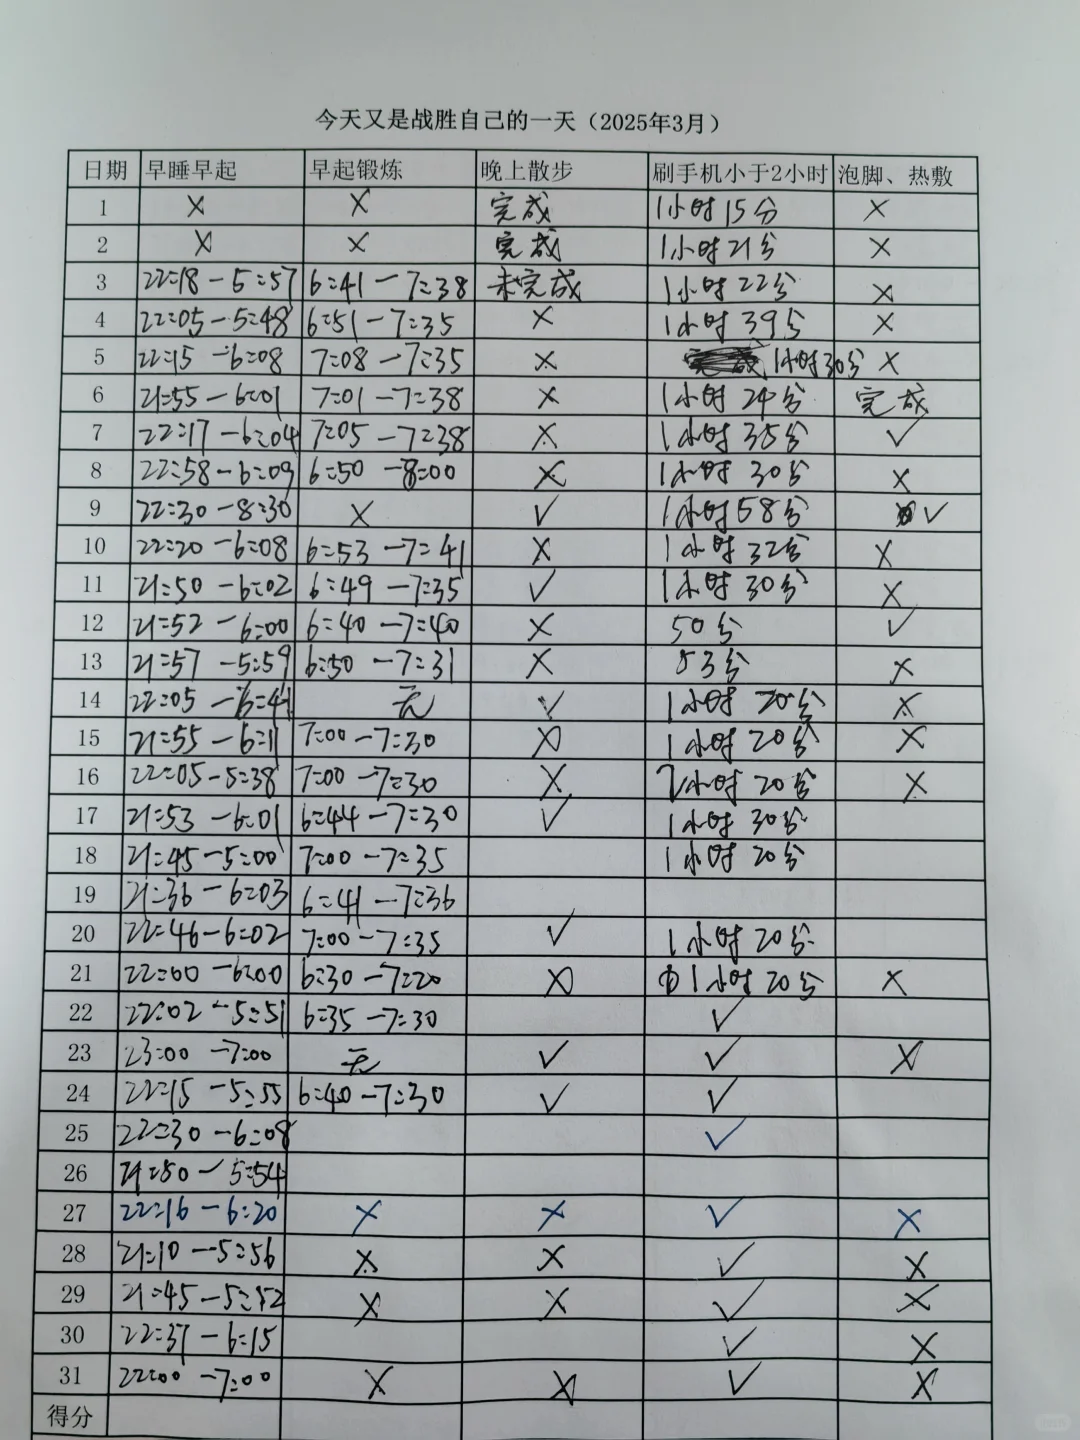 今天又是战胜自己的一天（2025年3月）
日期 早睡早起 早起锻炼 晚上散步 刷手机小于2小时 泡脚、热敷
1 × × 完成 1小时15分 ×
2 × × 完成 1小时21分 ×
3 22:18-5:57 6:41-7:38 未完成 1小时22分 ×
4 22:05-5:48 6:51-7:35 × 1小时39分 ×
5 22:15-6:08 7:08-7:35 × 1小时30分 ×
6 21:55-6:01 7:01-7:38 × 1小时24分 完成
7 22:17-6:04 7:05-7:38 × 1小时35分 ✓
8 22:58-6:09 6:50-8:00 × 1小时30分 ×
9 22:30-8:30 × ✓ 1小时58分 ✓
10 22:20-6:08 6:53-7:41 × 1小时32分 ×
11 21:50-6:02 6:49-7:35 ✓ 1小时30分 ×
12 21:52-6:00 6:40-7:40 × 50分 ✓
13 21:57-5:59 6:50-7:31 × 53分 ×
14 22:05-6:41 无 ✓ 1小时20分 ×
15 21:55-6:11 7:00-7:30 × 1小时20分 ×
16 22:05-5:38 7:00-7:30 × 2小时20分 ×
17 21:53-6:01 6:44-7:30 ✓ 1小时30分
18 21:45-5:00 7:00-7:35 1小时20分
19 21:36-6:03 6:41-7:36
20 22:46-6:02 7:00-7:35 ✓ 1小时20分
21 22:00-6:00 6:30-7:20 × 1小时20分 ×
22 22:02-5:51 6:35-7:30 ✓
23 23:00-7:00 无 ✓ ✓ ×
24 22:15-5:55 6:40-7:30 ✓ ✓
25 22:30-6:08 ✓
26 21:50-5:54
27 22:16-6:20 × × ✓ ×
28 21:10-5:56 × × ✓ ×
29 21:45-5:52 × × ✓ ×
30 22:37-6:15 ✓ ×
31 22:00-7:00 × × ✓ ×
得分